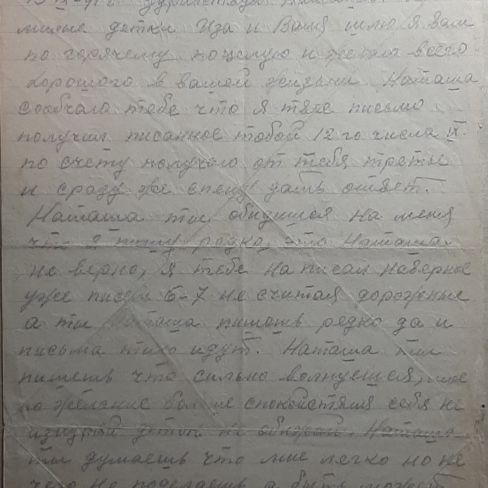 Здравствуй
милые детки Иза и Ваня шлю я вам
по горячему поцелую и желаю всего
хорошего в вашей жизни Наташа
сообчаю тебе что я твае письмо
получил писанное тобой 12 го числа IX.
по счету получаю от тебя третье
и сразу же спешу дать ответ.
Наташа ты обидишся на меня
что я пишу редко, это Наташа
не верно, я тебе написал наверное
уже писем 6-7 не считая дорожные
а ты Наташа пишешь редко да и
письма тихо идут. Наташа ты
пишешь что сильно волнуешся, мое
желание больше спокойствия себя не
изнуряй деток не обижай. Наташа
ты думаешь что мне легко но не
чего не поделаешь а быть может